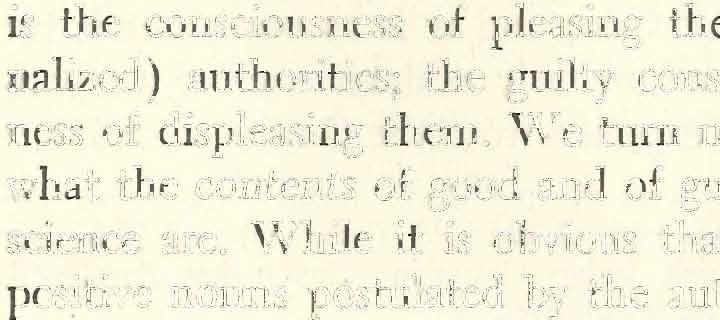 is the consciousness of pleasing the
nalized) authorities; the guilty cons
ness of displeasing them. We turn n
what the contents of good and of gu
science are. While it is obvious tha
positive norms postulated by the aut